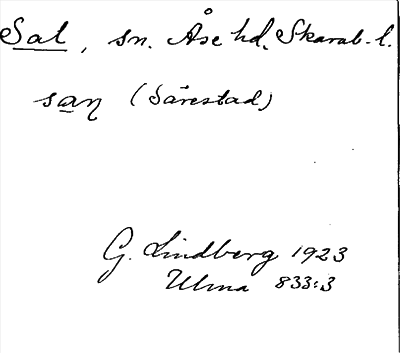 Sal, sn. Åse hd. Skarab. l.
san (Särestad)
G. Lindberg 1923
Ulma 833:3